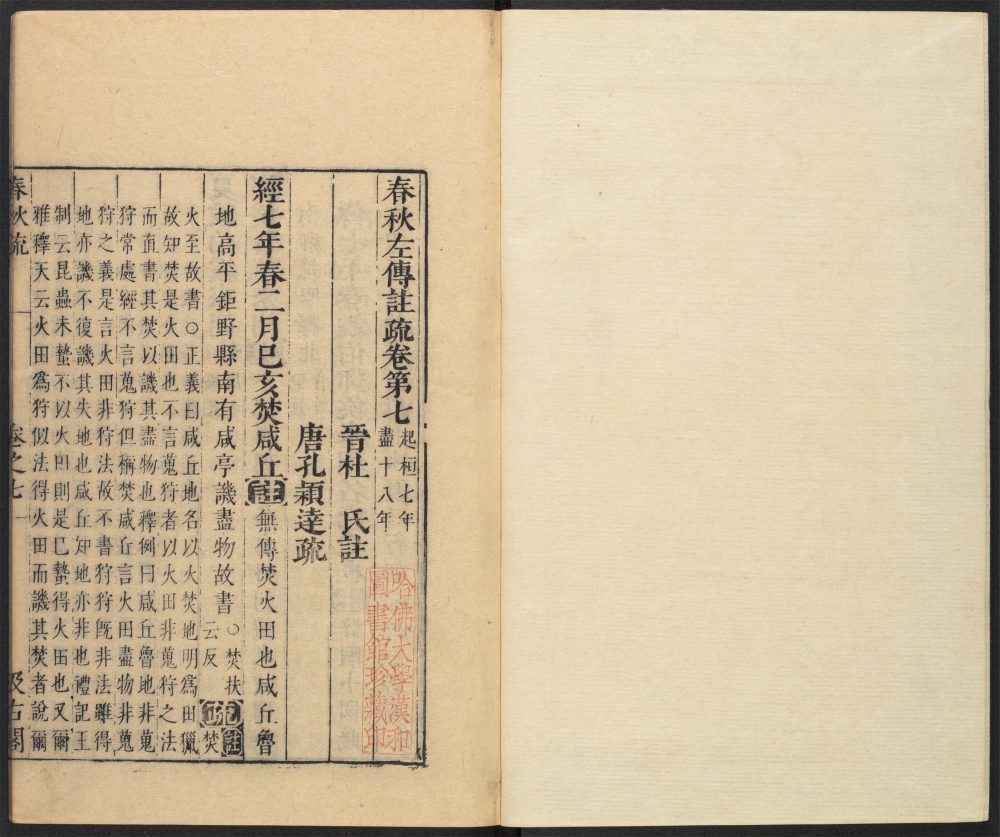 春秋左傳註疏卷第七
起桓七年
盡十八年
晉杜 氏註
唐孔穎達疏
經七年春二月己亥焚咸丘註無傳焚火田也咸丘魯
地高平鉅野縣南有咸亭譏盡物故書○焚扶
云反
疏註焚
火至故書○正義曰咸丘地名以火焚地明爲田獵
故知焚是火田也不言蒐狩者以火田非蒐狩之法
而直書其焚以譏其盡物也釋例曰咸丘魯地非蒐
狩常處經不言蒐狩但稱焚咸丘言火田盡物非蒐
狩之義是言火田非狩法故不書狩狩旣非法雖得
地亦譏不復譏其失地也咸丘知地亦非也禮記王
制云昆蟲未蟄不以火田則是已蟄得火田也又爾
雅釋天云火田爲狩似法得火田而譏其焚者說爾
春秋疏 卷之七 一 汲古閣
哈佛大學漢和
圖書館珍藏印